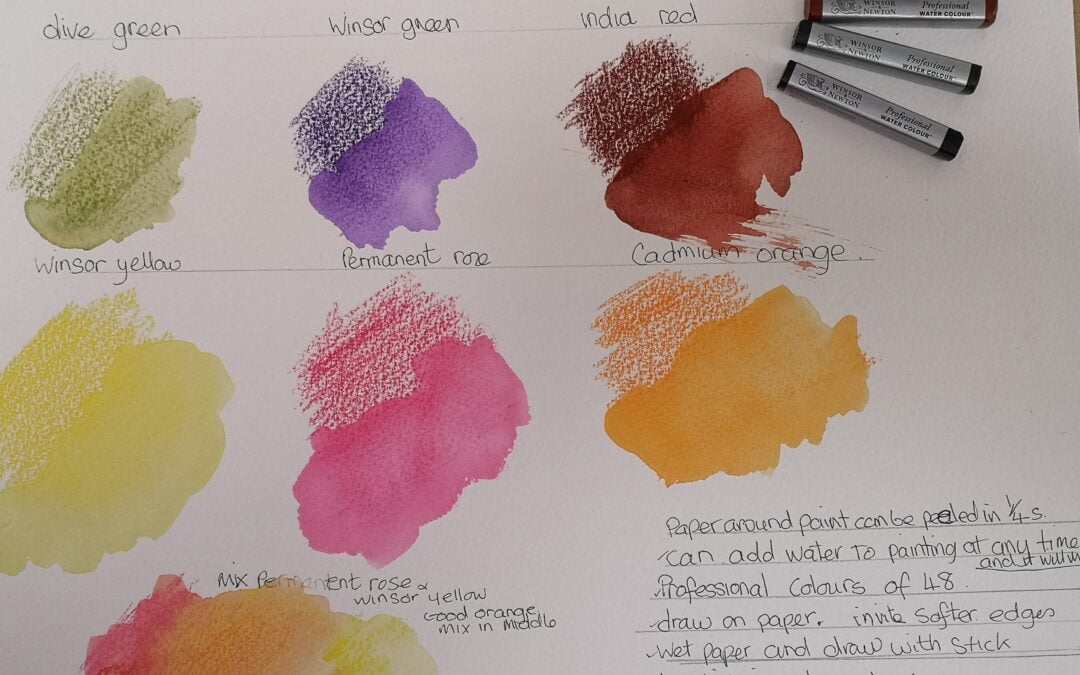 olive green
Winsor green
india red
WINSOR & NEWTON
Professional
WATER COLOUR™
WINSOR & NEWTON
Professional
WATER COLOUR™
WINSOR & NEWTON
Professional
WATER COLOUR™
Winsor yellow
Permanent rose
Cadmium orange.
mix Permanent rose &
winsor yellow
Good orange
mix in middle
Paper around paint can be peeled in 1/4s.
can add water to painting at any time
and it will
Professional Colours of 48.
draw on paper. invite softer edges
Wet paper and draw with stick